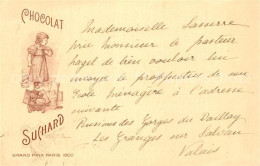 CHOCOLAT
SUCHARD
GRAND PRIX PARIS 1900
Mademoiselle Lanerre
prie monsieur le pasteur
hagel de bien vouloir lui
envoyer le prospectus de son
Ecole ménagère à l'adresse
suivante
Pensions des Gorges du Daillay
les Granges sur Salvan
Valais